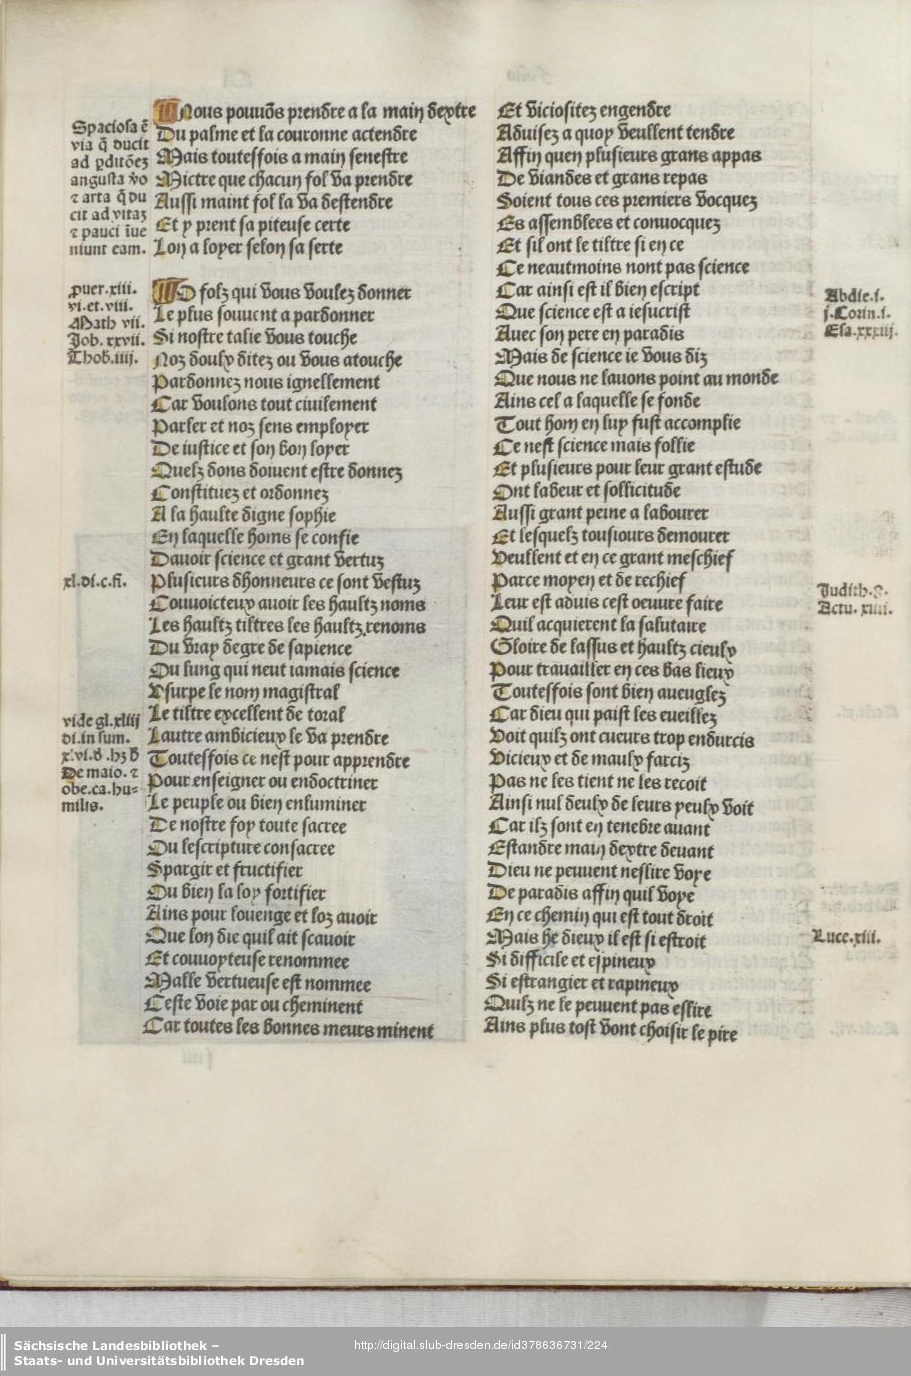 Nous pouuõs prendre a la main dextre
Du palme et la couronne actendre
Mais toutesfois a main senestre
Mictre que chacun fol va prendre
Aussi maint fol la va destendre
Et y prent sa piteuse certe
Lon a loyer selon sa serte
O folz qui vous voulez donner
Le plus souuent a pardonner
Si nostre talie vous touche
Noz doulx ditez ou vous atouche
Pardonnez nous ignellement
Car voulons tout ciuilement
Parler et noz sens employer
De iustice et son bon loyer
Quelz dons doiuent estre donnez
Constituez et ordonnez
A la haulte digne sophie
En laquelle homs se confie
Dauoir science et grant vertuz
Plusieurs dhonneurs ce sont vestuz
Couuoicteux auoir les haultz noms
Les haultz tiltres les haultz renoms
Du vray degre de sapience
Ou lung qui neut iamais science
Vsurpe le nom magistral
Le tiltre excellent de toral
Lautre ambicieux le va prendre
Toutesfois ce nest pour apprendre
Pour enseigner ou endoctriner
Le peuple ou bien enluminer
De nostre foy toute sacree
Ou lescripture consacree
Spargir et fructifier
Ou bien la loy fortifier
Ains pour louenge et loz auoir
Que lon die quil ait scauoir
Et couuoyteuse renommee
Malle vertueuse est nommee
Ceste voie par ou cheminent
Car toutes les bonnes meurs minent
Spaciosa ē
via q̄ ducit
ad ꝑditōez
angusta vo
⁊ arta q̄ du
cit ad vitaz
⁊ pauci īue
niunt eam.
Prouer.xiii.
vi.et.viii.
Math vii.
Job.xxvii.
Thob.iiij.
xl.di.c.fi.
vide gl.xliij
di.in sum.
De maio.⁊
obe.ca.hu-
milis.
Et viciositez engendre
Aduisez a quoy veullent tendre
Affin quen plusieurs grans appas
De viandes et grans repas
Soient tous ces premiers vocquez
Es assemblees et conuocquez
Et sil ont le tiltre si en ce
Ce neautmoins nont pas science
Car ainsi est il bien escript
Que science est a iesucrist
Auec son pere en paradis
Mais de science ie vous diz
Que nous ne lauons point au monde
Ains cel a laquelle se fonde
Tout hom en luy fust accomplie
Ce nest science mais follie
Et plusieurs pour leur grant estude
Ont labeur et sollicitude
Aussi grant peine a labourer
Et lesquelz tousiours demourer
Veullent et en ce grant meschief
Parce moyen et de rechief
Leur est aduis cest oeuure faire
Quil acquierent la salutaire
Gloire de lassus et haultz cieulx
Pour trauailler en ces bas lieux
Toutesfois sont bien aueuglez
Car dieu qui paist les eueillez
Voit quilz ont cueurs trop endurcis
Vicieux et de maulx farciz
Pas ne les tient ne les recoit
Ainsi nul deulx de leurs yeulx voit
Car ilz sont en tenebre auant
Estandre main dextre deuant
Dieu ne peuuent neslire voye
De paradis affin quil voye
En ce chemin qui est tout droit
Mais he dieux il est si estroit
Si difficile et espineux
Si estrangier et rapineux
Quilz ne le peuuent pas eslire
Ains plus tost vont choisir le pire
Abdie.i.
j.Corin.i.
Esa.xxxiij.
Judith.8.
Actu.xiiii.
Luce.xiii.
Sächsische Landesbibliothek –
Staats- und Universitätsbibliothek Dresden
http://digital.slub-dresden.de/id378636731/224